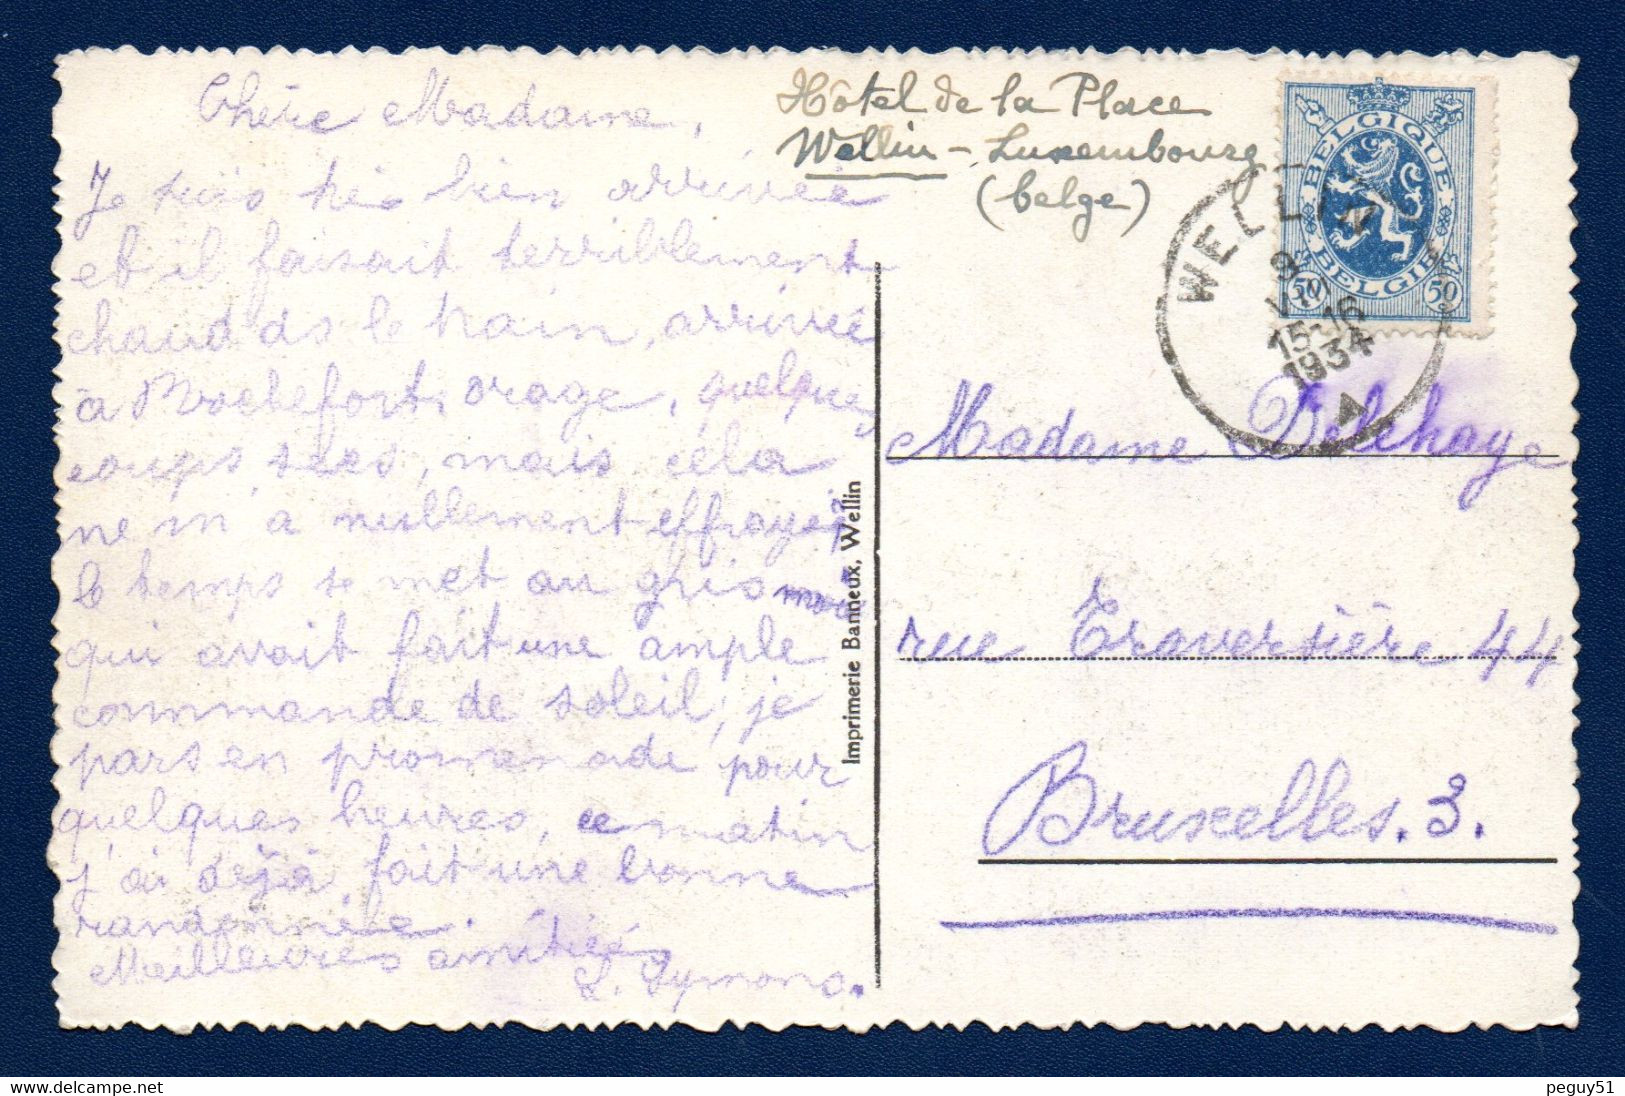 Chère Madame,
Je suis très bien arrivée
et il faisait terriblement
chaud ds le train, arrivée
à Rochefort, orage, quelques
coups secs, mais cela
ne m'a nullement effrayée,
le temps se met au gris
qui avait fait une ample
commande de soleil, je
pars en promenade pour
quelques heures, ce matin
j'ai déjà fait une bonne
randonnée.
Meilleures amitiés
L. Symons.
Imprimerie Banneux, Wellin
Hôtel de la Place
Wellin - Luxembourg
(belge)
BELGIQUE
BELGIE
50 50
WELLIN
15-16
1934
Madame Delehaye
rue Traversière 44
Bruxelles. 3.
peguy51